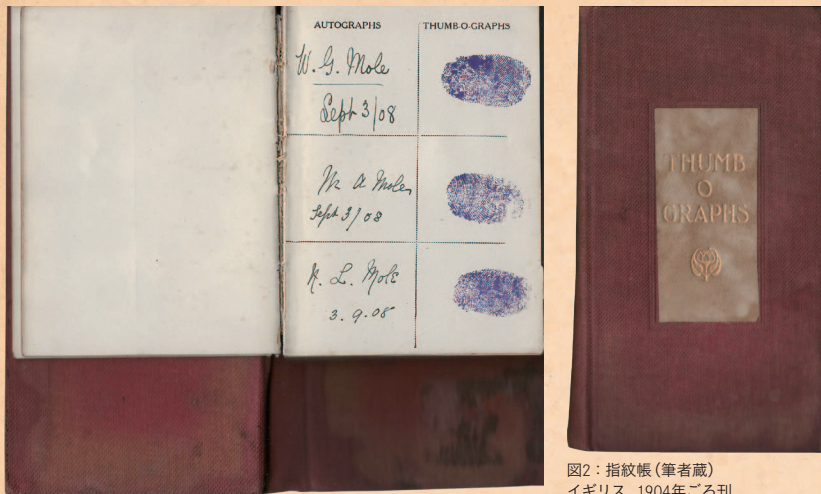 AUTOGRAPHS THUMB-O-GRAPHS
W. G. Mole
Sept 3/08
M A Mole
Sept 3/08
K. L. Mole
3.9.08
THUMB
O
GRAPHS
図2：指紋帳（筆者蔵）
イギリス、1904年ごろ刊